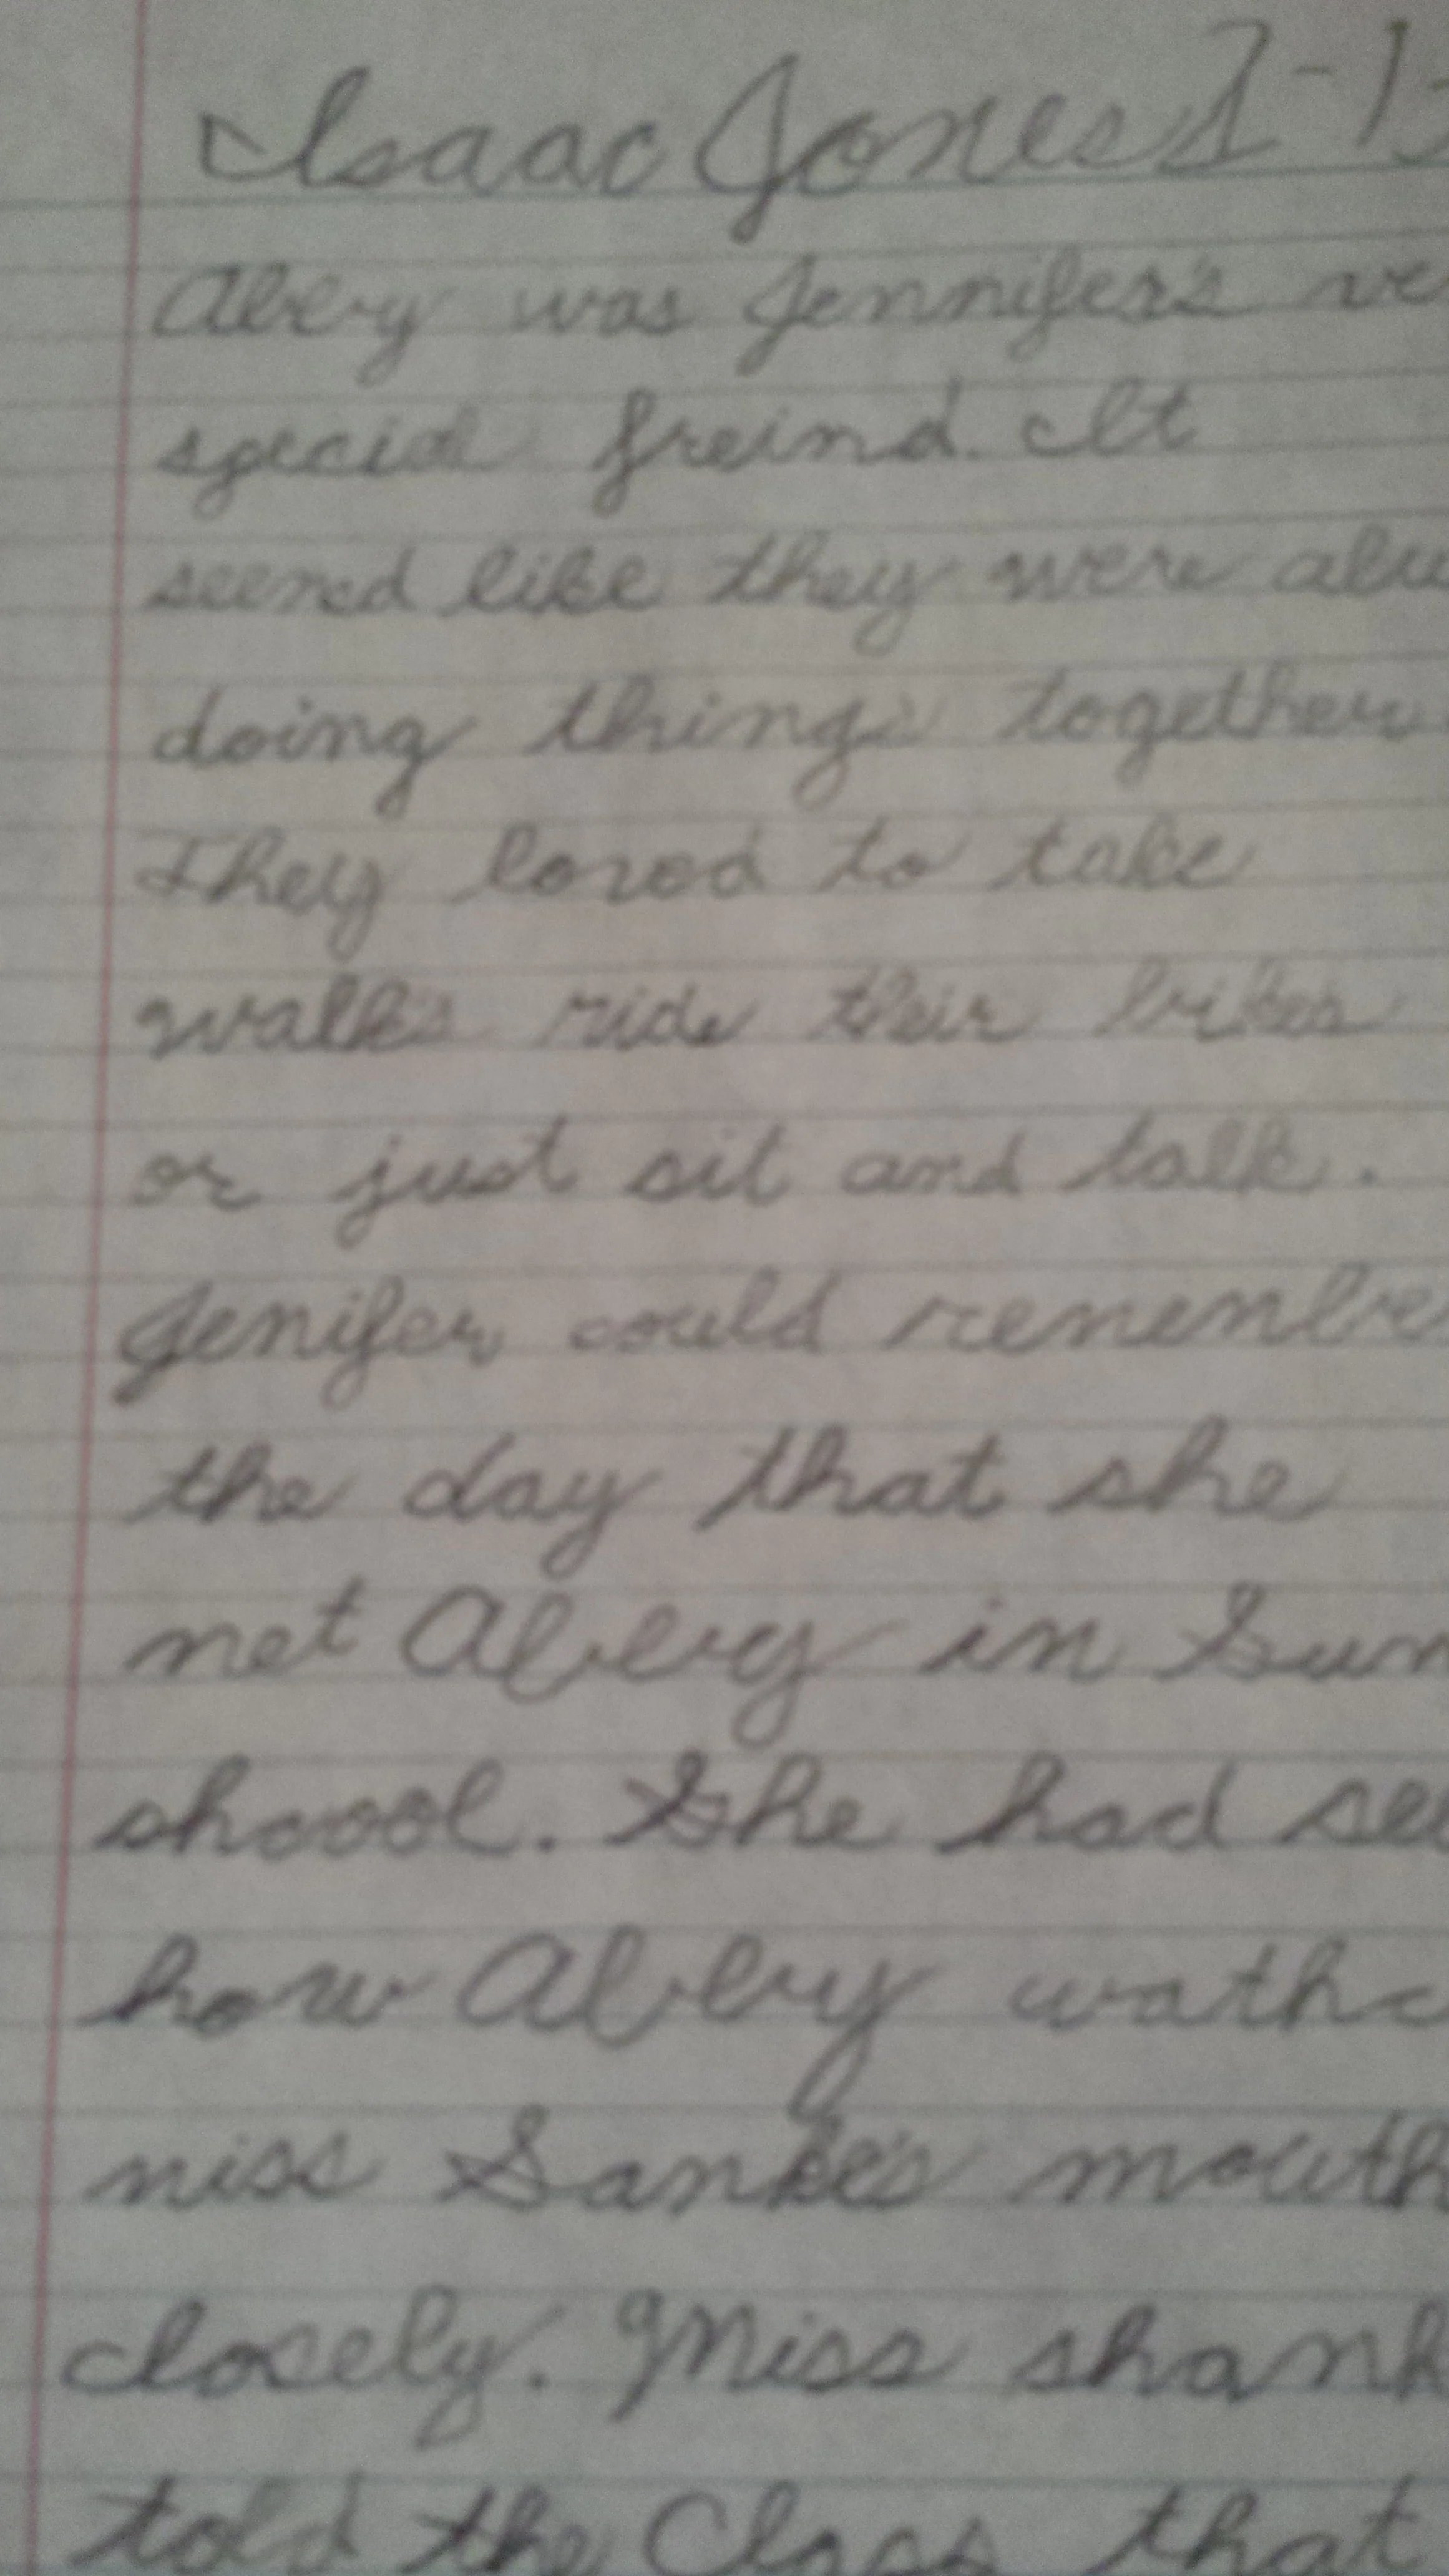 Isaac Jones 1-1
Abby was Jennifer's ve
special freind. It
seemed like they were alw
doing things together
They loved to take
walks ride their bikes
or just sit and talk.
Jenifer could renenbe
the day that she
net Abby in Sun
shoool. She had see
how Abby wathc
niss Sanke's mouth
closely. Miss shank
told the Class that